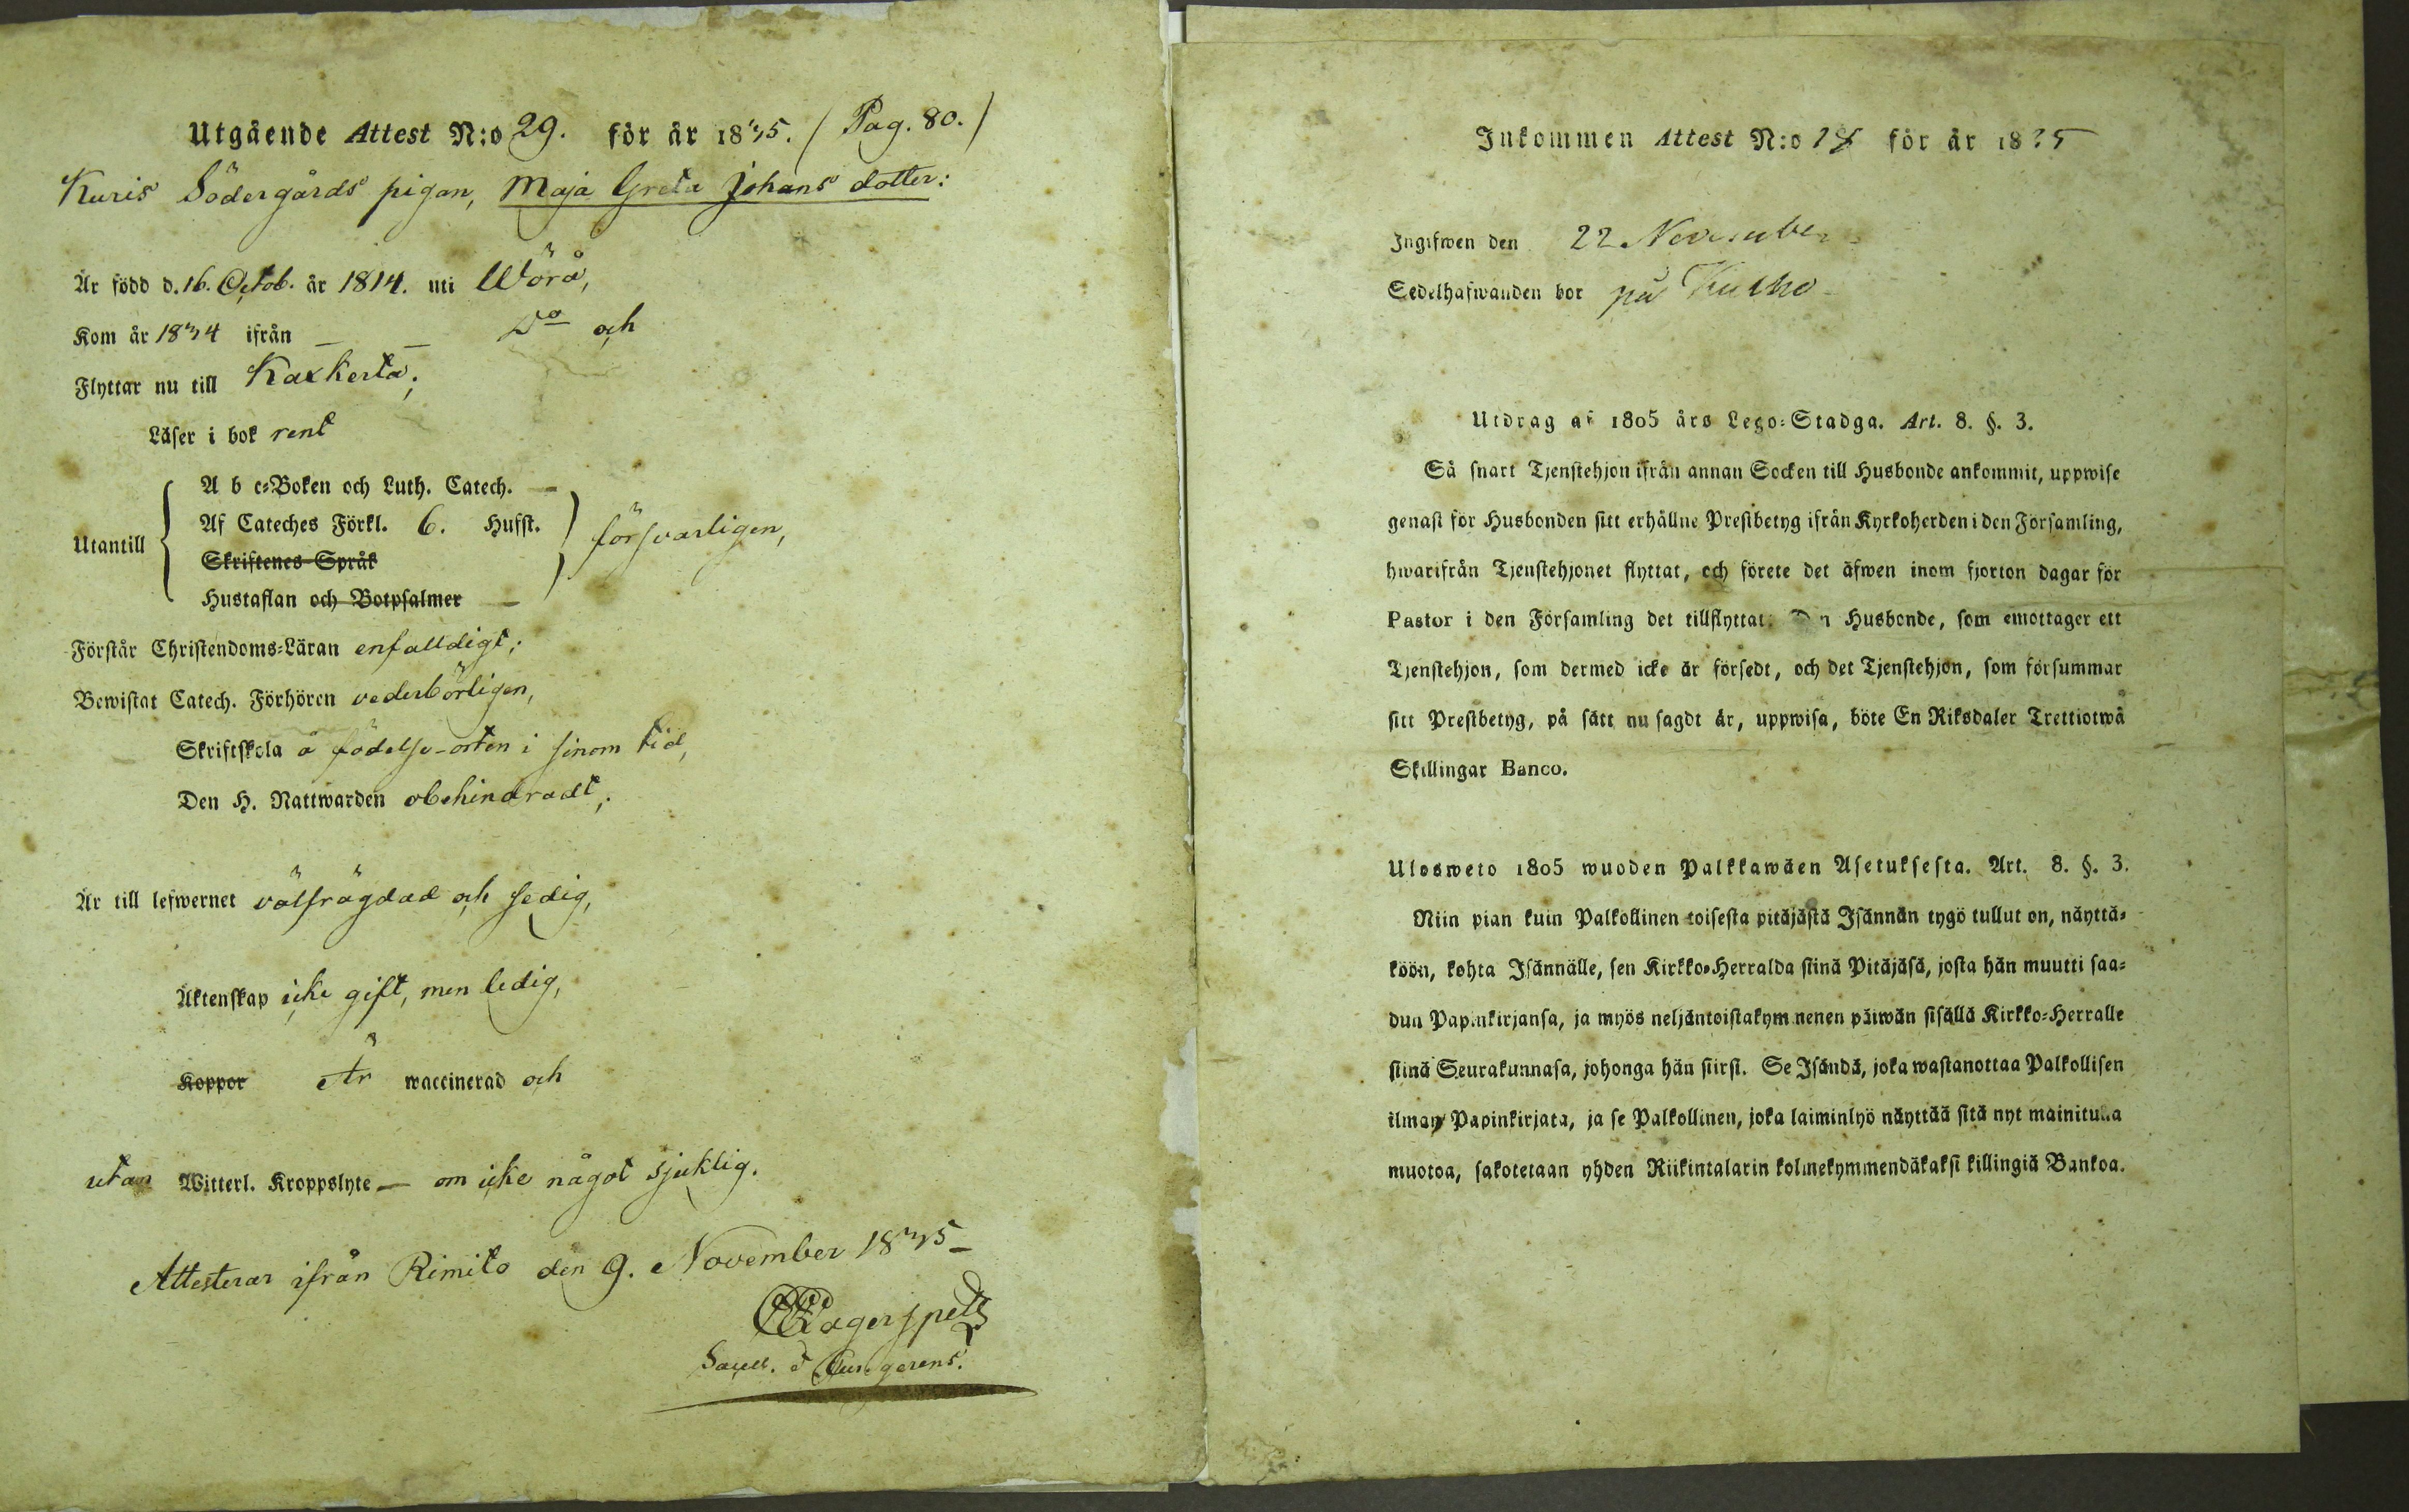 Utgående Attest N:o 29. för år 1835. / Pag. 80. /
Kuris Södergårds pigan, Maja Greta Johans dotter:
Är född d. 16. Octob. år 1814. uti Wörå,
Kom år 1834 ifrån — — Do och
Flyttar nu till Kaxkerta;
Läser i bok rent
Utantill
A b c-Boken och Luth. Catech. —
Af Cateches Förkl. 6. Hufst.
Skriftenes Språk
Hustaflan och Botpsalmer —
försvarligen,
Förstår Christendoms-Läran enfalldigt;
Bewistat Catech. Förhören vederbörligen,
Skriftskola å födelse-orten i sinom tid,
Den H. Nattwarden obehindradt;
Är till lefwernet välfrägdad och sedig,
Äktenskap icke gift, men ledig,
Koppor Är waccinerad och
utan Witterl. Kroppslyte — om icke något sjuklig.
Attesterar ifrån Rimito den 9. November 1835 —
Lagerspetz
Sacell. & Cur. gerens.
Inkommen Attest N:o för år 1835
Ingifwen den 22 November
Sedelhafwanden bor på
Utdrag af 1805 års Lego-Stadga. Art. 8. §. 3.
Så snart Tjenstehjon ifrån annan Socken till Husbonde ankommit, uppwise
genast för Husbonden sitt erhållne Prestbetyg ifrån Kyrkoherden i den Församling,
hwarifrån Tjenstehjonet flyttat, och förete det äfwen inom fjorton dagar för
Pastor i den Församling det tillflyttat. Den Husbonde, som emottager ett
Tjenstehjon, som dermed icke är försedt, och det Tjenstehjon, som försummar
sitt Prestbetyg, på sätt nu sagdt är, uppwisa, böte En Riksdaler Trettiotwå
Skillingar Banco.
Ulosweto 1805 wuoden Palkkawäen Asetuksesta. Art. 8. §. 3.
Niin pian kuin Palkollinen toisesta pitäjästä Isännän tygö tullut on, näyttä-
köön, kohta Isännälle, sen Kirkko-Herralda siinä Pitäjäsä, josta hän muutti saa-
dun Papinkirjansa, ja myös neljäntoistakymmenen päiwän sisällä Kirkko-Herralle
siinä Seurakunnasa, johonga hän siirsi. Se Isändä, joka wastanottaa Palkollisen
ilman Papinkirjata, ja se Palkollinen, joka laiminlyö näyttää sitä nyt mainitulla
muotoa, sakotetaan yhden Riikintalarin kolmekymmendäkaksi killingiä Bankoa.